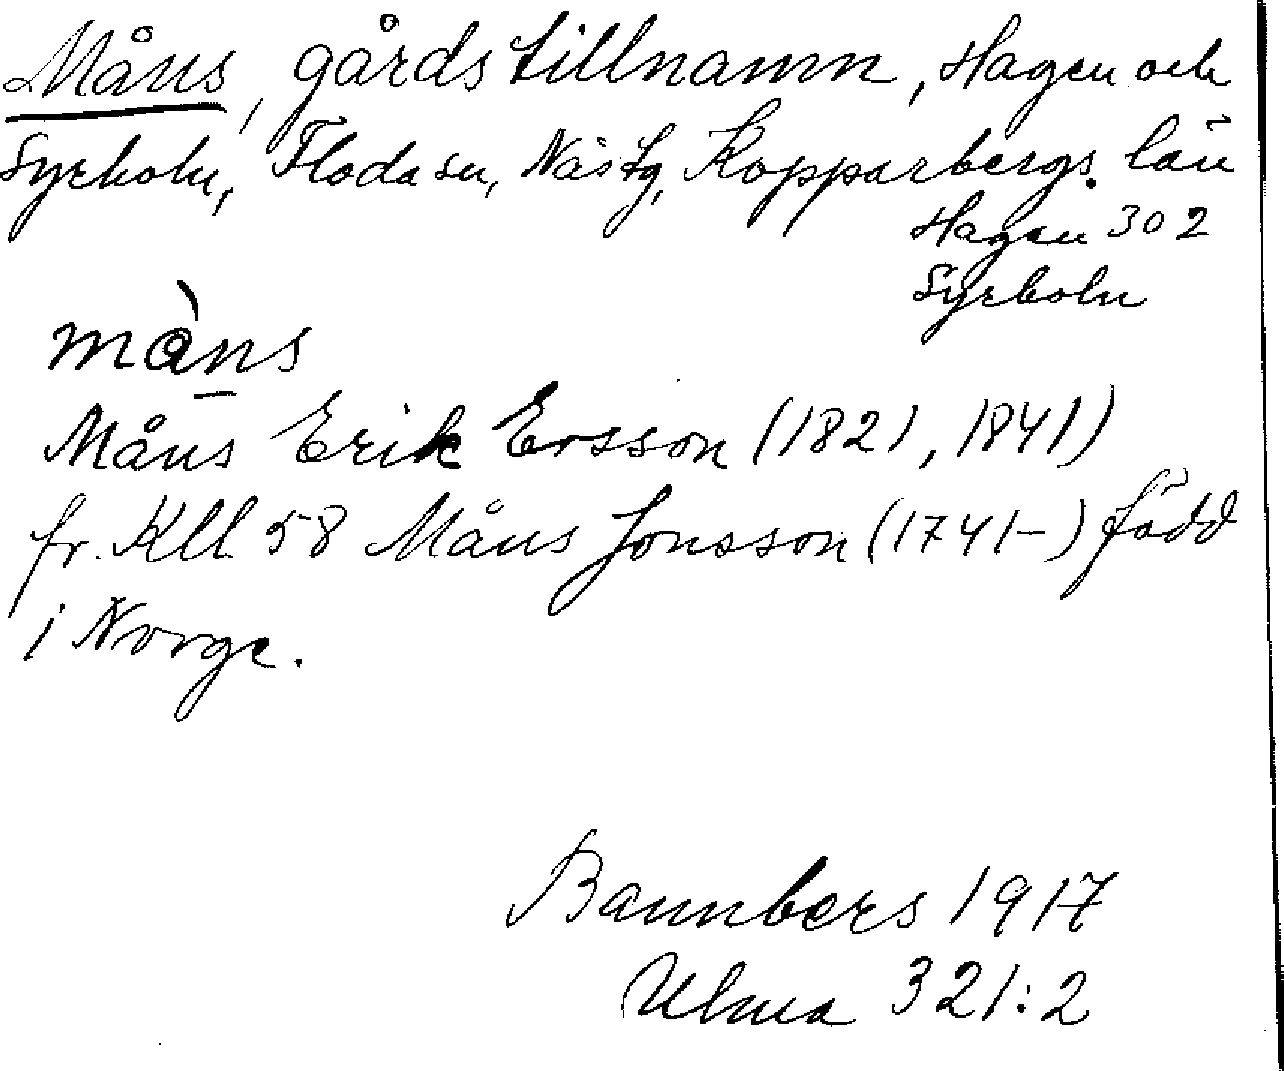 Måns, gårdstillnamn, Hagen och
Syrholn, Floda sn, Näs tg, Kopparbergs. län
Hagen 302
Syrholn
màns
Måns Erik Ersson (1821, 1841)
fr. Kll 58 Måns Jonsson (1741-) född
i Norge.
Bannbers 1917
Ulma 321:2